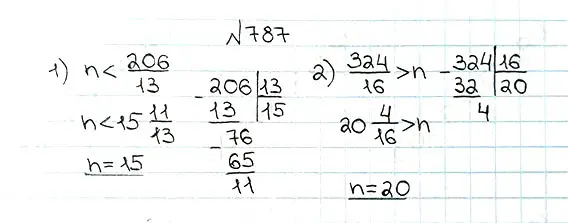 №787
1) n < 206/13
n < 15 11/13
n = 15
- 206 | 13
13 | 15
- 76
65
11
2) 324/16 > n
20 4/16 > n
n = 20
- 324 | 16
32 | 20
4